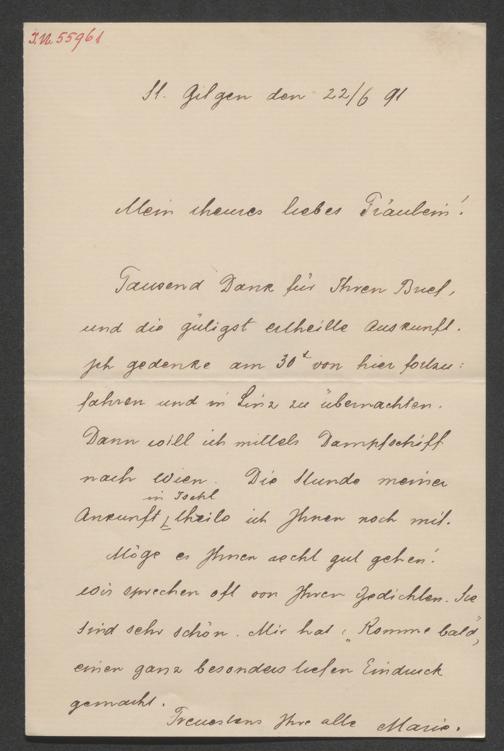 I.N. 55961
St. Gilgen den 22/6 91
Mein theures liebes Fräulein!
Tausend Dank für Ihren Brief,
und die gütigst ertheilte Auskunft.
Ich gedenke am 30t von hier fortzu:
fahren und in Linz zu übernachten.
Dann will ich mittels Dampfschiff
nach Wien. Die Stunde meiner
in Ischl
Ankunft theile ich Ihnen noch mit.
Möge es Ihnen recht gut gehen!
Wir sprechen oft von Ihren Gedichten. Sie
sind sehr schön. Mir hat „Komme bald"
einen ganz besonders tiefen Eindruck
gemacht.
Treuestens Ihre alte Marie.